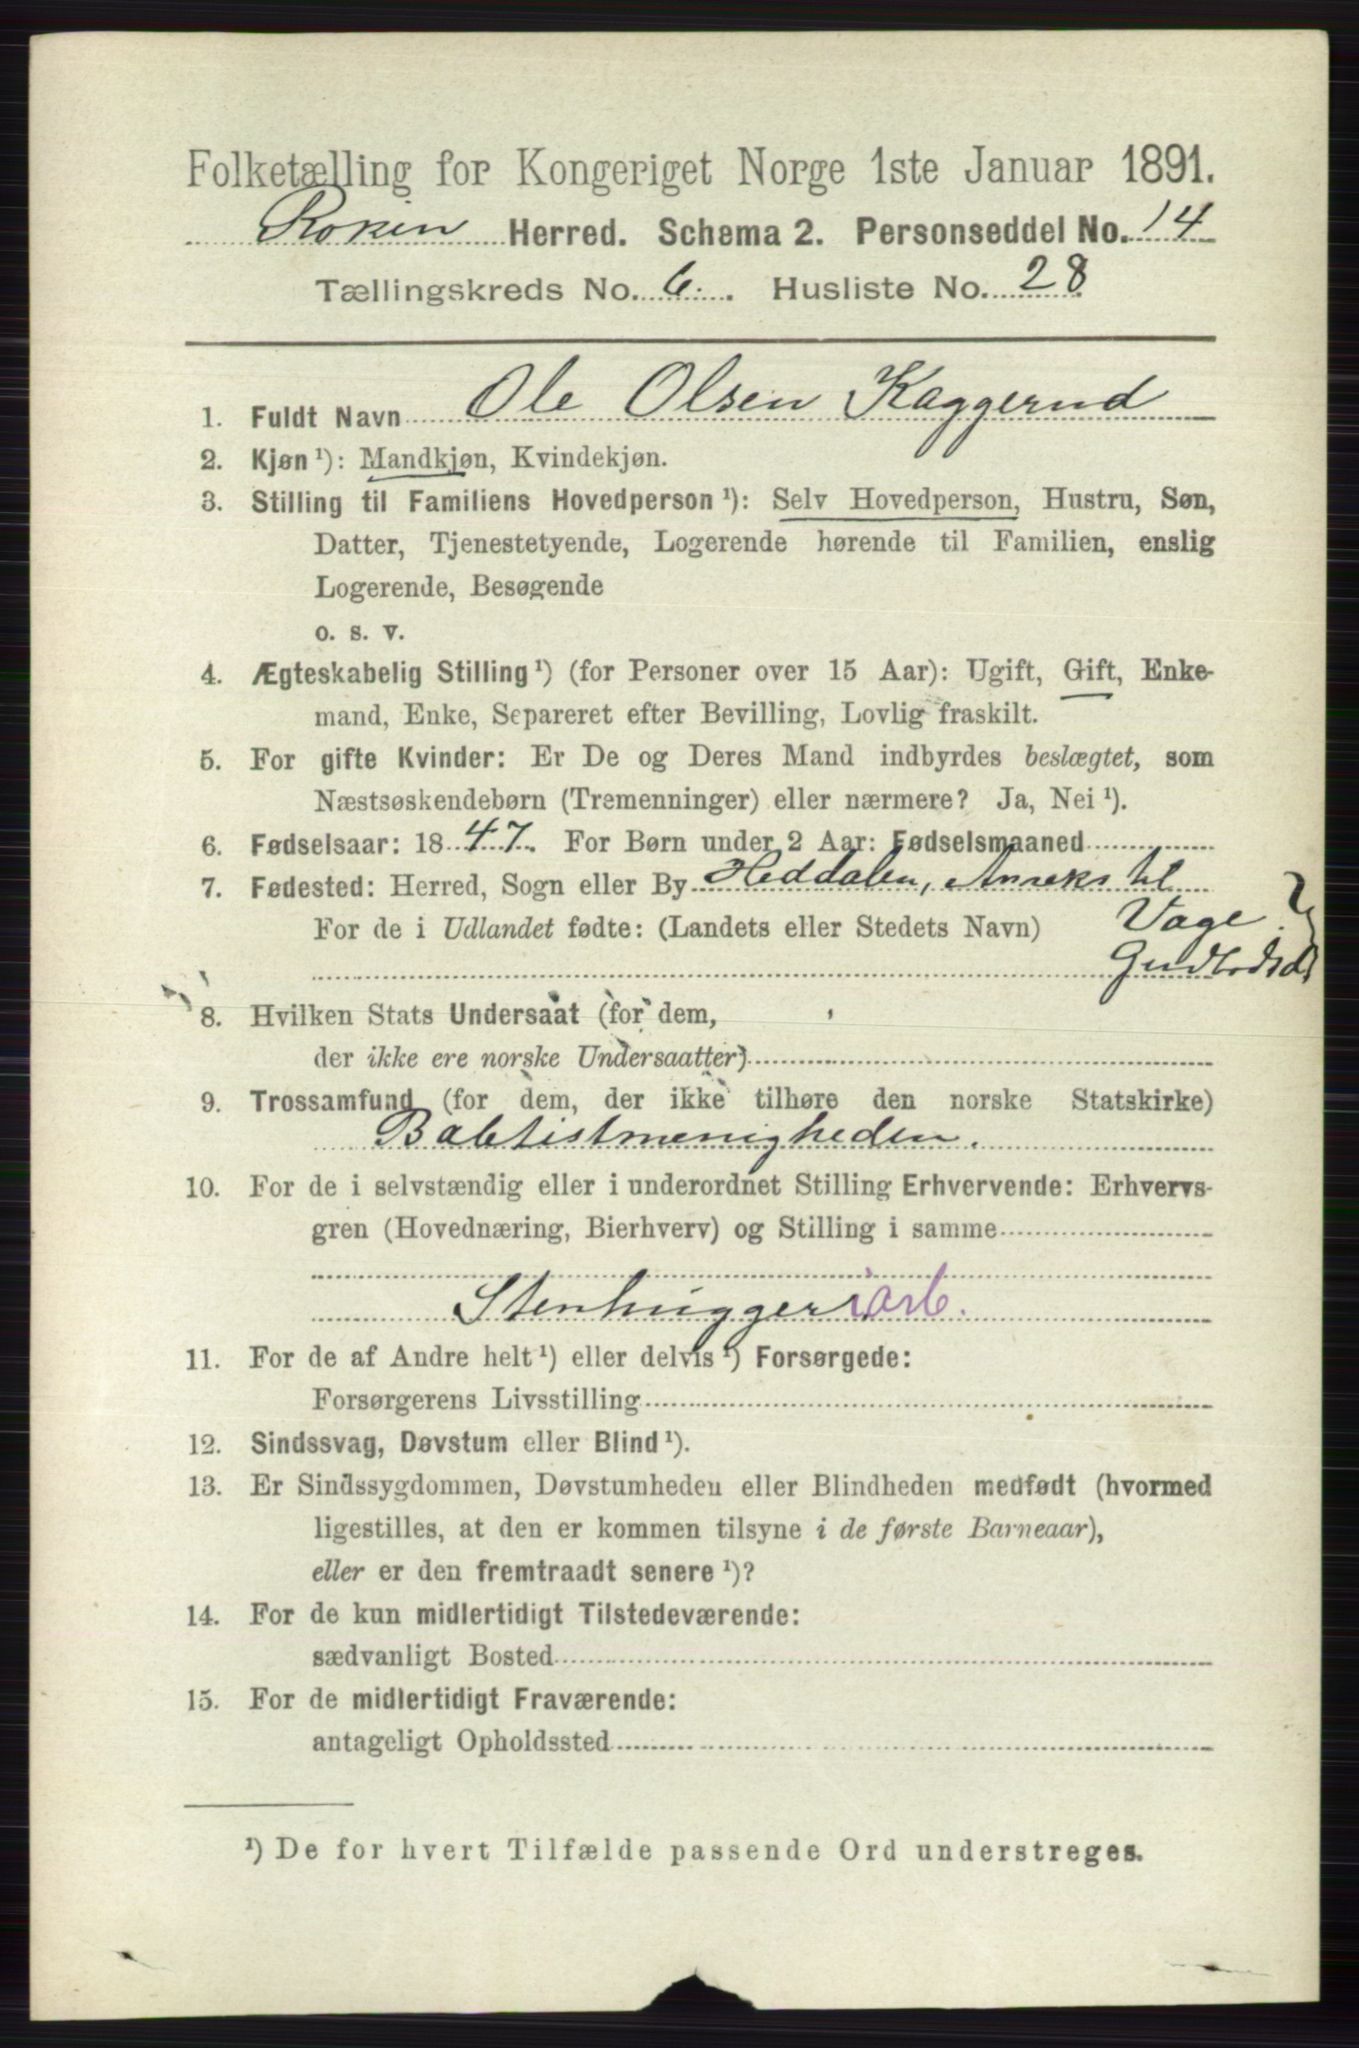 Folketælling for Kongeriget Norge 1ste Januar 1891.
Røken Herred. Schema 2. Personseddel No. 14
Tællingskreds No. 6. Husliste No. 28
1. Fuldt Navn Ole Olsen Kaggerud
2. Kjøn ¹): Mandkjøn, Kvindekjøn.
3. Stilling til Familiens Hovedperson ¹): Selv Hovedperson, Hustru, Søn,
Datter, Tjenestetyende, Logerende hørende til Familien, enslig
Logerende, Besøgende
o. s. v.
4. Ægteskabelig Stilling ¹) (for Personer over 15 Aar): Ugift, Gift, Enke-
mand, Enke, Separeret efter Bevilling, Lovlig fraskilt.
5. For gifte Kvinder: Er De og Deres Mand indbyrdes beslægtet, som
Næstsøskendebørn (Tremenninger) eller nærmere? Ja, Nei ¹).
6. Fødselsaar: 1847. For Børn under 2 Aar: Fødselsmaaned
7. Fødested: Herred, Sogn eller By Heddalen, Anneks til
For de i Udlandet fødte: (Landets eller Stedets Navn) Vage ?
8. Hvilken Stats Undersaat (for dem,
der ikke ere norske Undersaatter)
9. Trossamfund (for dem, der ikke tilhøre den norske Statskirke)
Babtistmenigheden.
10. For de i selvstændig eller i underordnet Stilling Erhvervende: Erhvervs-
gren (Hovednæring, Bierhverv) og Stilling i samme
Stenhuggeriarb.
11. For de af Andre helt ¹) eller delvis ¹) Forsørgede:
Forsørgerens Livsstilling
12. Sindssvag, Døvstum eller Blind ¹).
13. Er Sindssygdommen, Døvstumheden eller Blindheden medfødt (hvormed
ligestilles, at den er kommen tilsyne i de første Barneaar),
eller er den fremtraadt senere ¹)?
14. For de kun midlertidigt Tilstedeværende:
sædvanligt Bosted
15. For de midlertidigt Fraværende:
antageligt Opholdssted
¹) De for hvert Tilfælde passende Ord understreges.